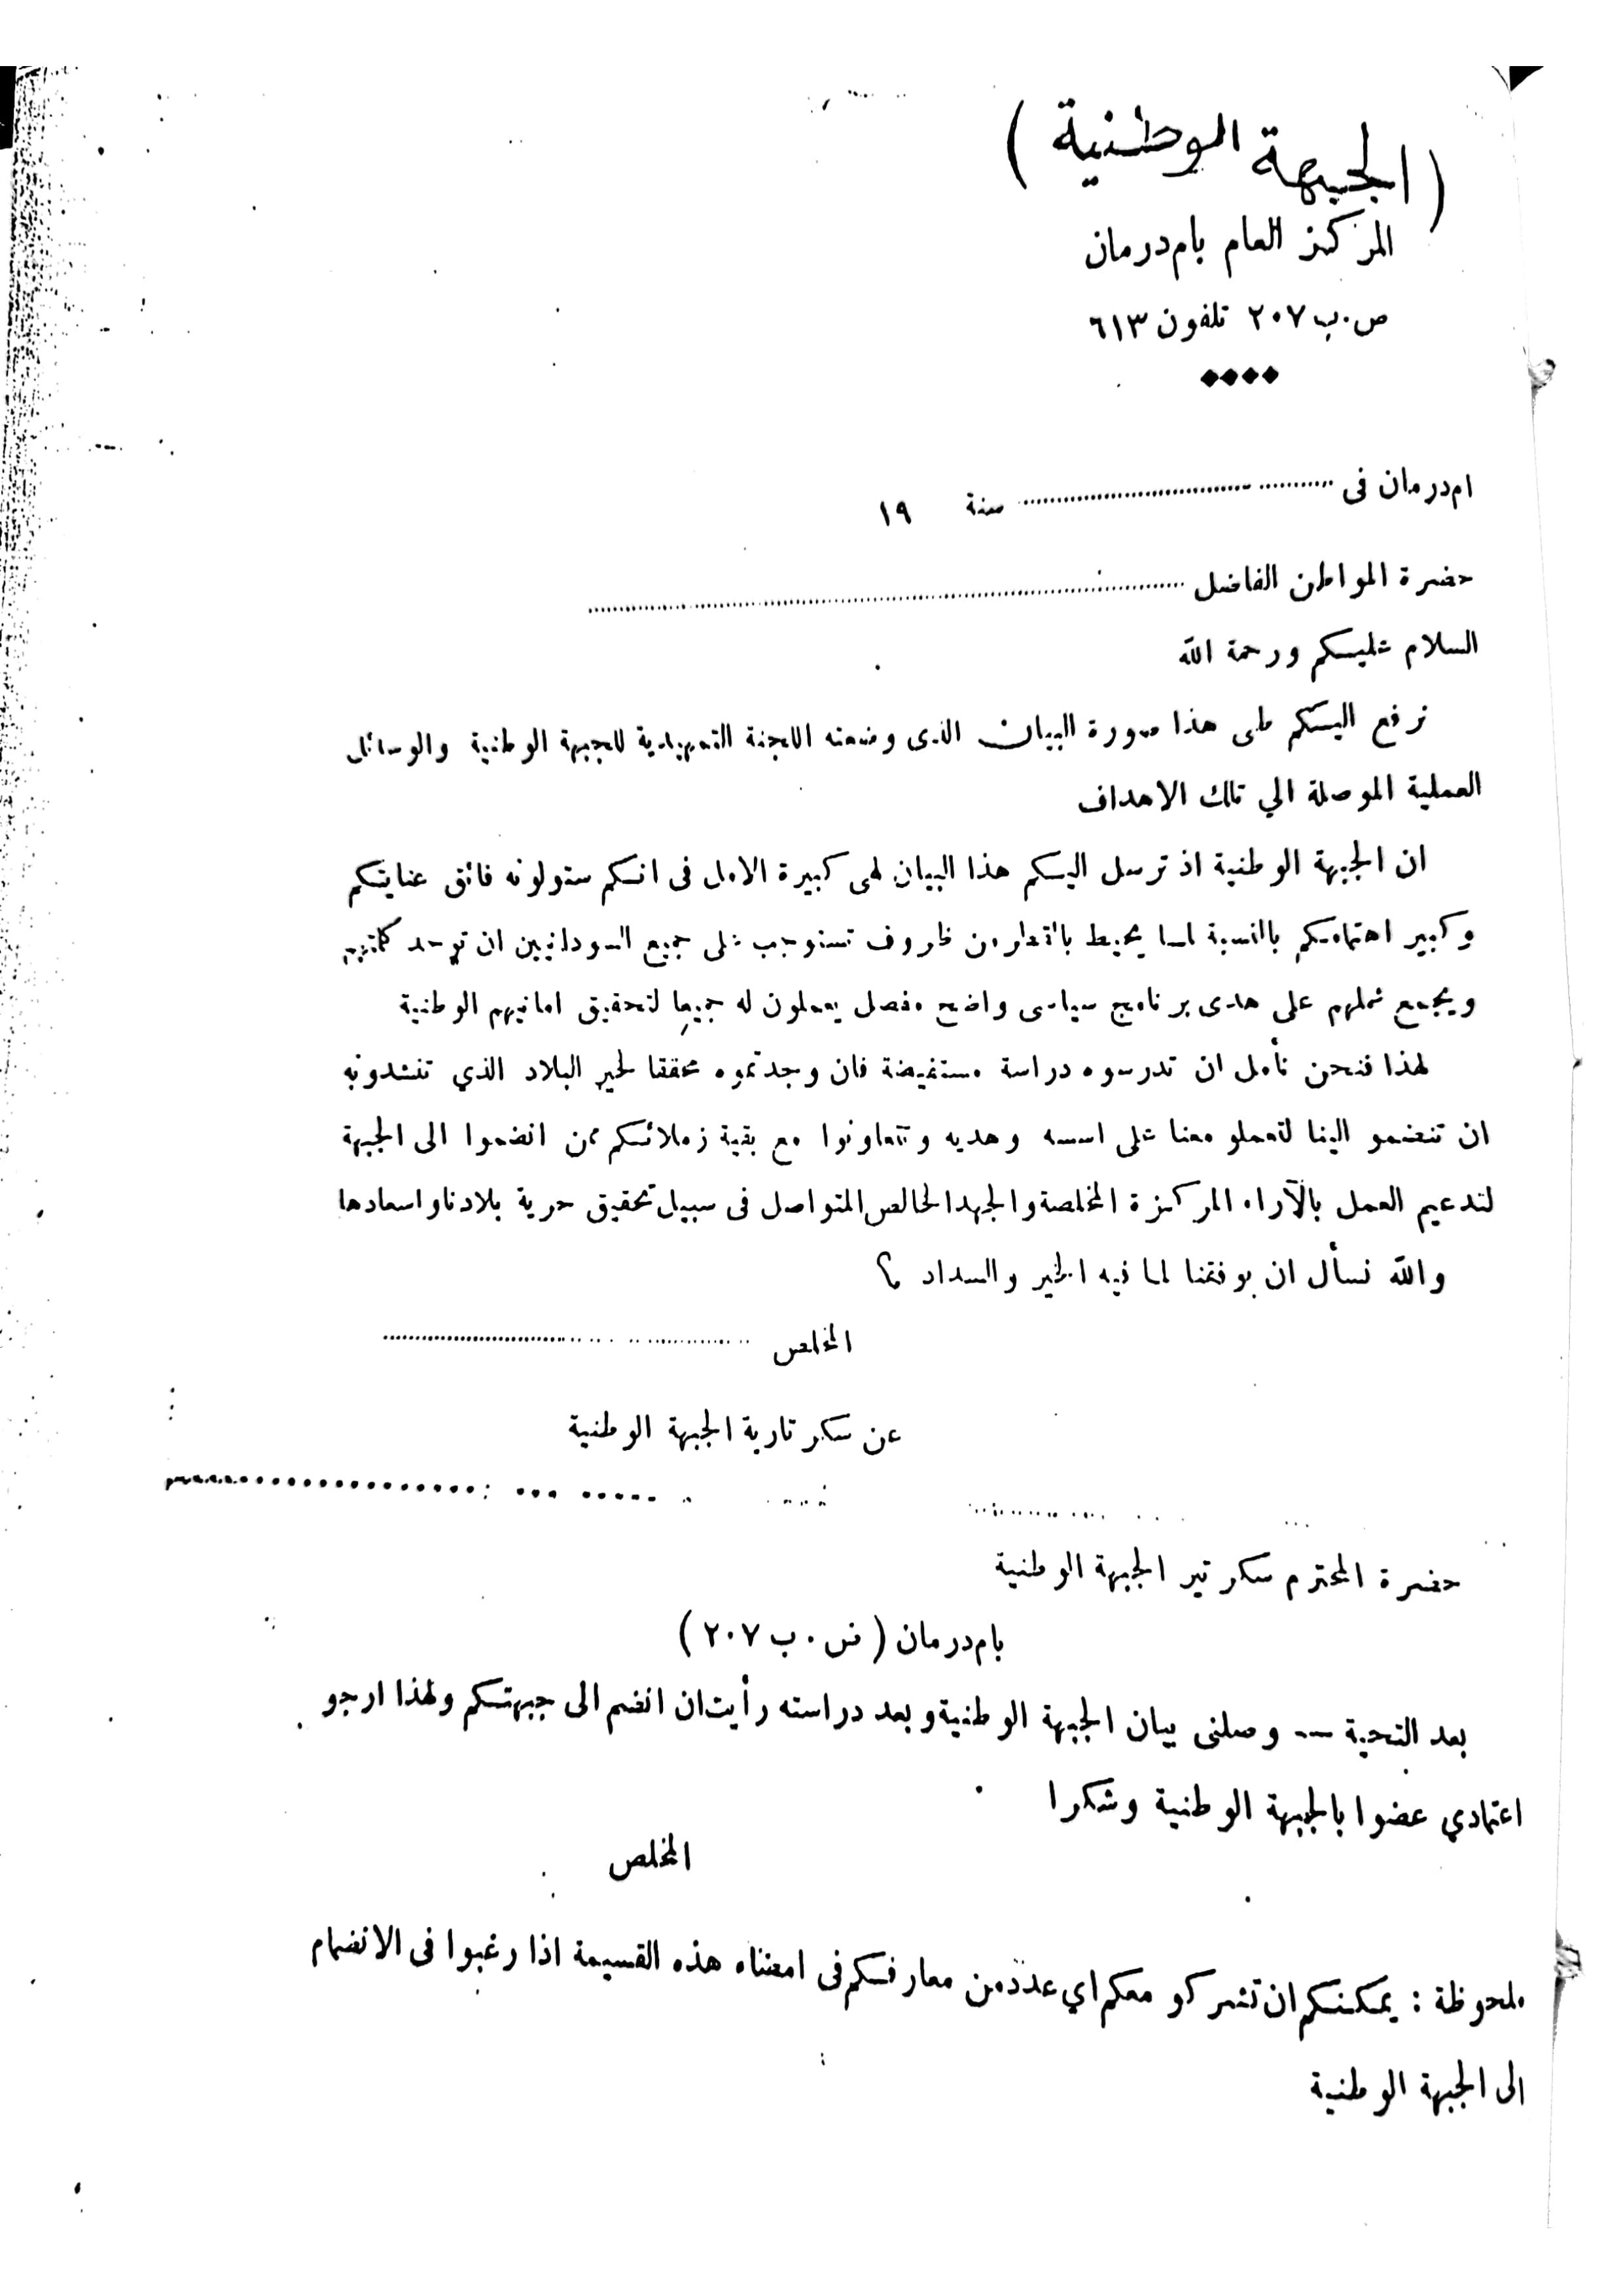 (الجبهة الوطنية)
المركز العام بام درمان
ص.ب ٢٠٧ تلفون ٦١٣
ام درمان فى .................... سنة ١٩
حضرة المواطن الفاضل ....................
السلام عليكم ورحمة الله
نرفع اليكم طى هذا صورة البيان الذى وضعته اللجنة التمهيدية للجبهة الوطنية والوسائل
العملية الموصلة الي تلك الاهداف
ان الجبهة الوطنية اذ ترسل اليكم هذا البيان لهى كبيرة الامل فى انكم ستولونه فائق عنايتكم
وكبير اهتمامكم بالنسبة لما يحيط بالقطر من ظروف تستوجب على جميع السودانيين ان توحد كلمتهم
ويجمع شملهم على هدى برنامج سياسى واضح مفصل يعملون له جميعا لتحقيق امانيهم الوطنية
لهذا فنحن نأمل ان تدرسوه دراسة مستفيضة فان وجدتموه محققا لخير البلاد الذي تنشدونه
ان تنضمو الينا لتعملو معنا على اسسه وهديه وتتعاونوا مع بقية زملائكم ممن انضموا الى الجبهة
لتدعيم العمل بالآراء المركزة المخلصة والجهد الخالص المتواصل فى سبيل تحقيق حرية بلادنا واسعادها
والله نسأل ان يوفقنا لما فيه الخير والسداد ؟
المخلص ....................
عن سكرتارية الجبهة الوطنية
حضرة المحترم سكرتير الجبهة الوطنية
بام درمان (ص.ب ٢٠٧)
بعد التحية -- وصلنى بيان الجبهة الوطنية وبعد دراسته رأيت ان انضم الى جبهتكم ولهذا ارجو
اعتمادي عضوا بالجبهة الوطنية وشكرا
المخلص
ملحوظة : يمكنكم ان تشركو معكم اي عدد من معارفكم فى امضاء هذه القسيمة اذا رغبوا فى الانضمام
الى الجبهة الوطنية